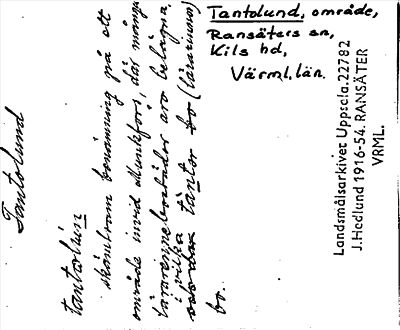 Tantolund, område,
Ransäters sn,
Kils hd,
Värml. län.
Landsmålsarkivet Uppsala. 22782
J. Hedlund 1916-54. RANSÄTER
VRML.
Tantolund
tantolún
skämtsam benämning på ett
område invid Munkfors, där många
lärarinnebostäder äro belägna,
i vilka tantor bo (lärarinnor)
bo.